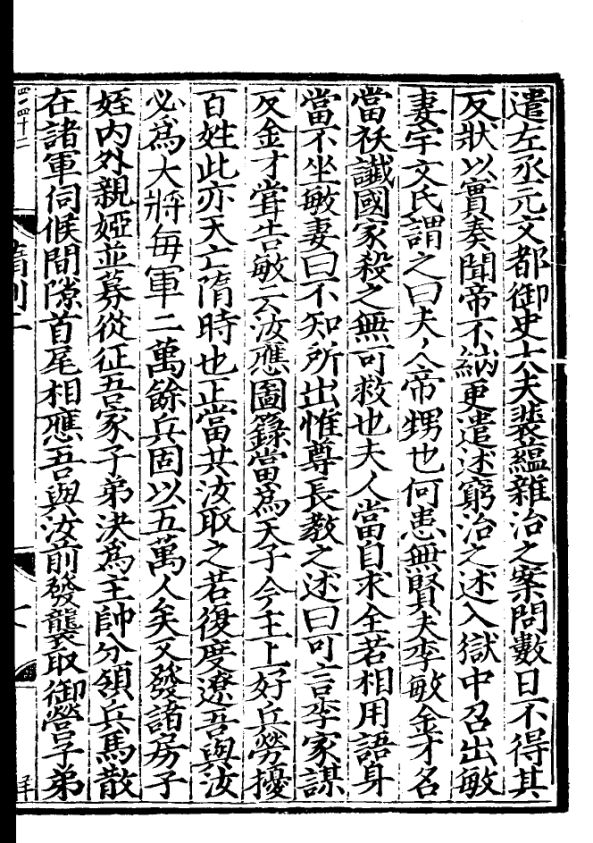 遣左丞元文都御史大夫裴蘊雜治之案問數日不得其
反狀以實奏聞帝不納更遣述窮治之述入獄中召出敏
妻宇文氏謂之曰夫人帝甥也何患無賢夫李敏金才名
當祅讖國家殺之無可救也夫人當自求全若相用語身
當不坐敏妻曰不知所出惟尊長教之述曰可言李家謀
反金才甞告敏云汝應圖籙當為天子今主上好兵勞擾
百姓此亦天亡隋時也正當共汝取之若復度遼吾與汝
必為大將每軍二萬餘兵固以五萬人矣又發諸房子
姪內外親婭並募從征吾家子弟決為主帥分領兵馬散
在諸軍伺候間隙首尾相應吾與汝前發襲取御營子弟
四·四十二